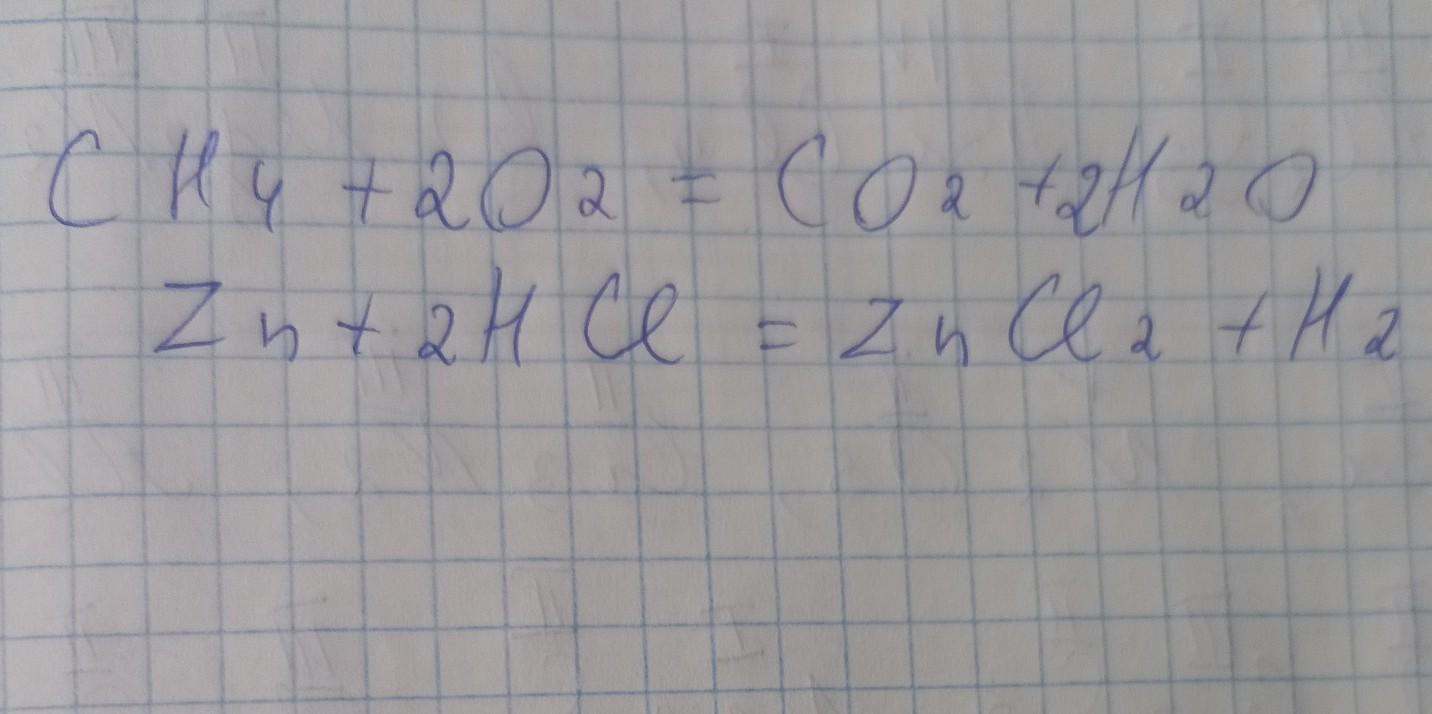 CH4 + 2O2 = CO2 + 2H2O
Zn + 2HCl = ZnCl2 + H2